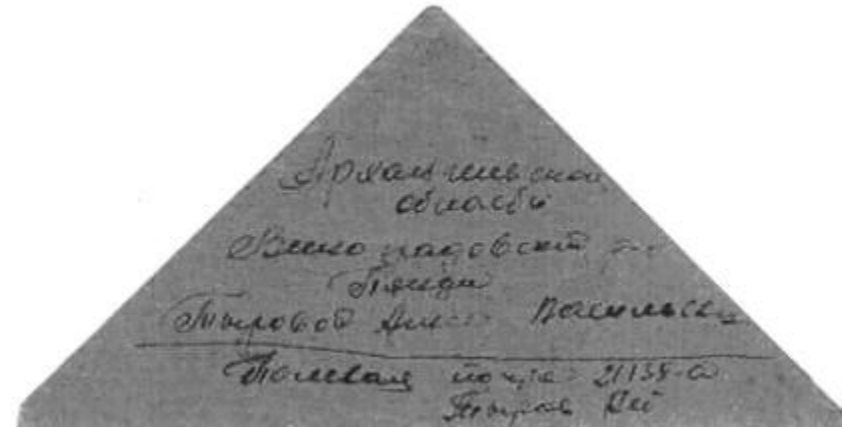 Архангельская
область
Виноградовский
Пянда
Тыровой Анне Васильевне
Полевая почта 21135-а
Тыров